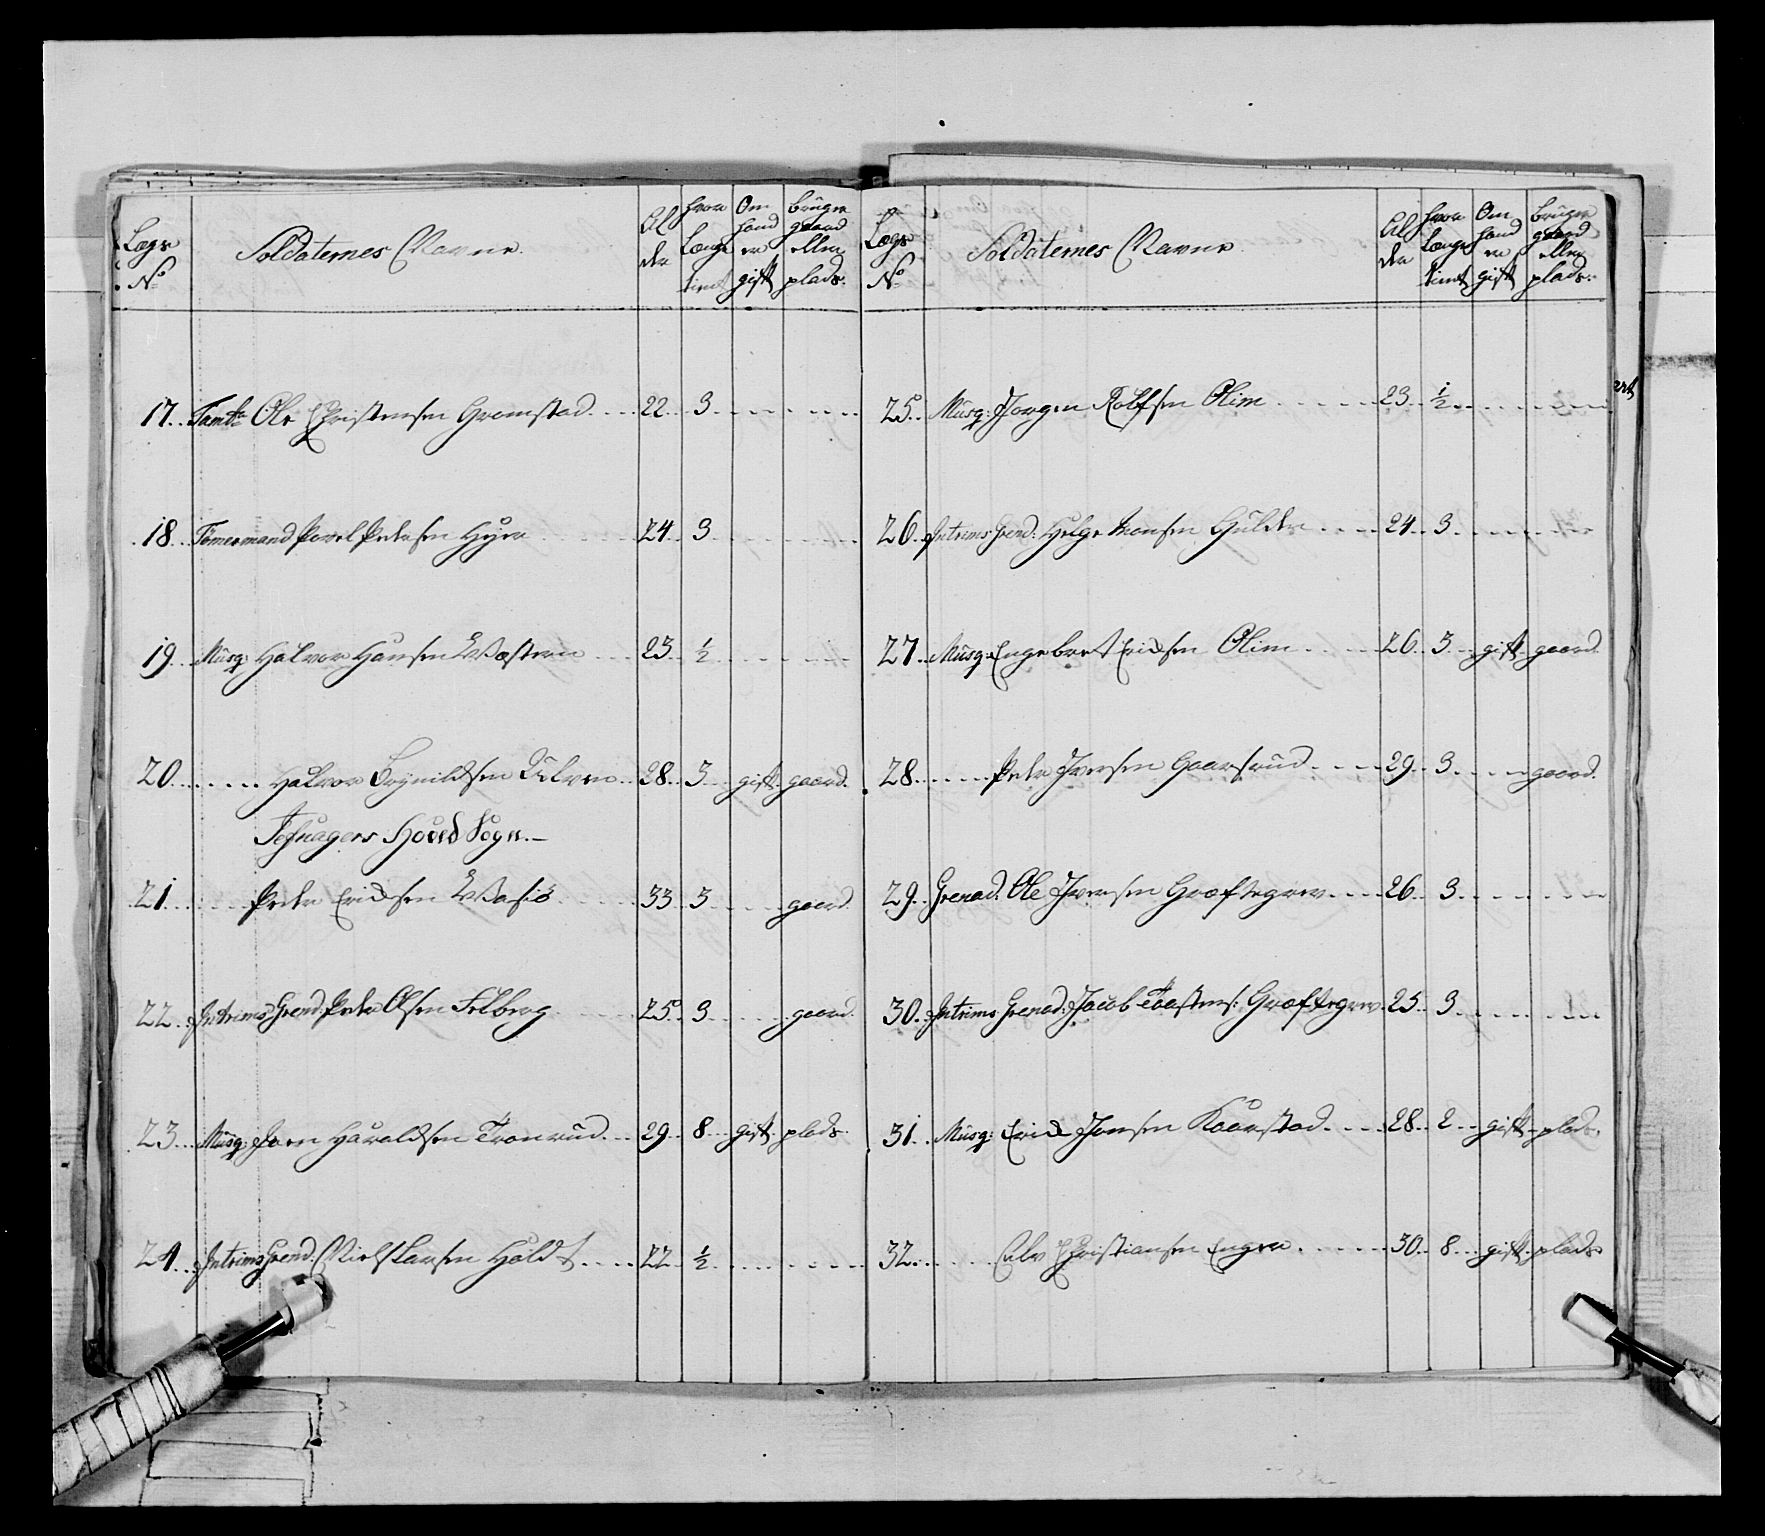 Lægs No
Soldaternes Navne
Al der
hvor længe tient
Om hand er gift
bruger gaard eller plads.
17. Tambr Ole Christensen Gremstad 22 3
18. Tømermand Povel Pedersen Hyre 24 3
19. Musq: Halvor Hansen Wæstern 23 ½
20. Halvor Brynildsen Kilven 28 3 gift gaard.
Jefnagers Hoved Sogn.
21. Peder Ericksen Wasiø 33 3 gaard
22. Intrims Grend. Peder Olsen Felberg 25 3 gaard
23. Musq: Joen Haraldsen Tronrud 29 8 gift plads
24. Intrims Grend: Niels Larsen Holdt 22 ½
Lægs No
Soldaternes Navne
Al der
hvor længe tient
Om hand er gift
bruger gaard eller plads.
25. Musq: Jørgen Rolfsen Olim 23 ½
26. Intrims Grend: Helge Monsen Gulden 24 3
27. Musq: Engebret Ericksen Olim 26 3 gift gaard
28. Peder Iversen Gaarsrud 29 3 gaard.
29. Grenad. Ole Iversen Græftegrev 26 3
30. Intrims Grenad: Jacob Torstens: Græftegrev 25 3
31. Musq: Erick Jonsen Kaarstad 28 2 gift plads
32. Christiansen Engen 30 8 gift plads